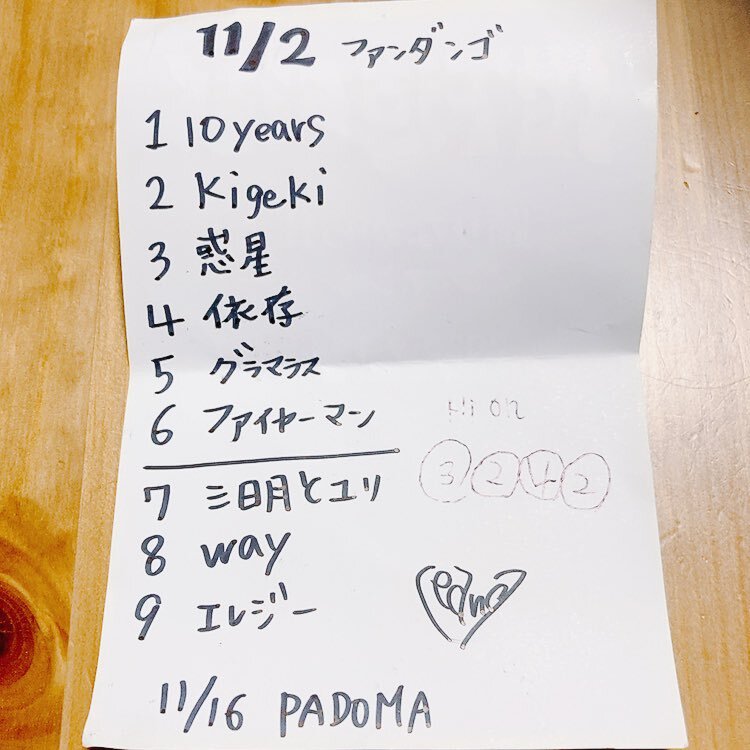 11/2 ファンダンゴ
1 10years
2 Kigeki
3 惑星
4 依存
5 グラマラス
6 ファイヤーマン
7 三日月とユリ
8 way
9 エレジー
3 2 4 2
11/16 PADOMA